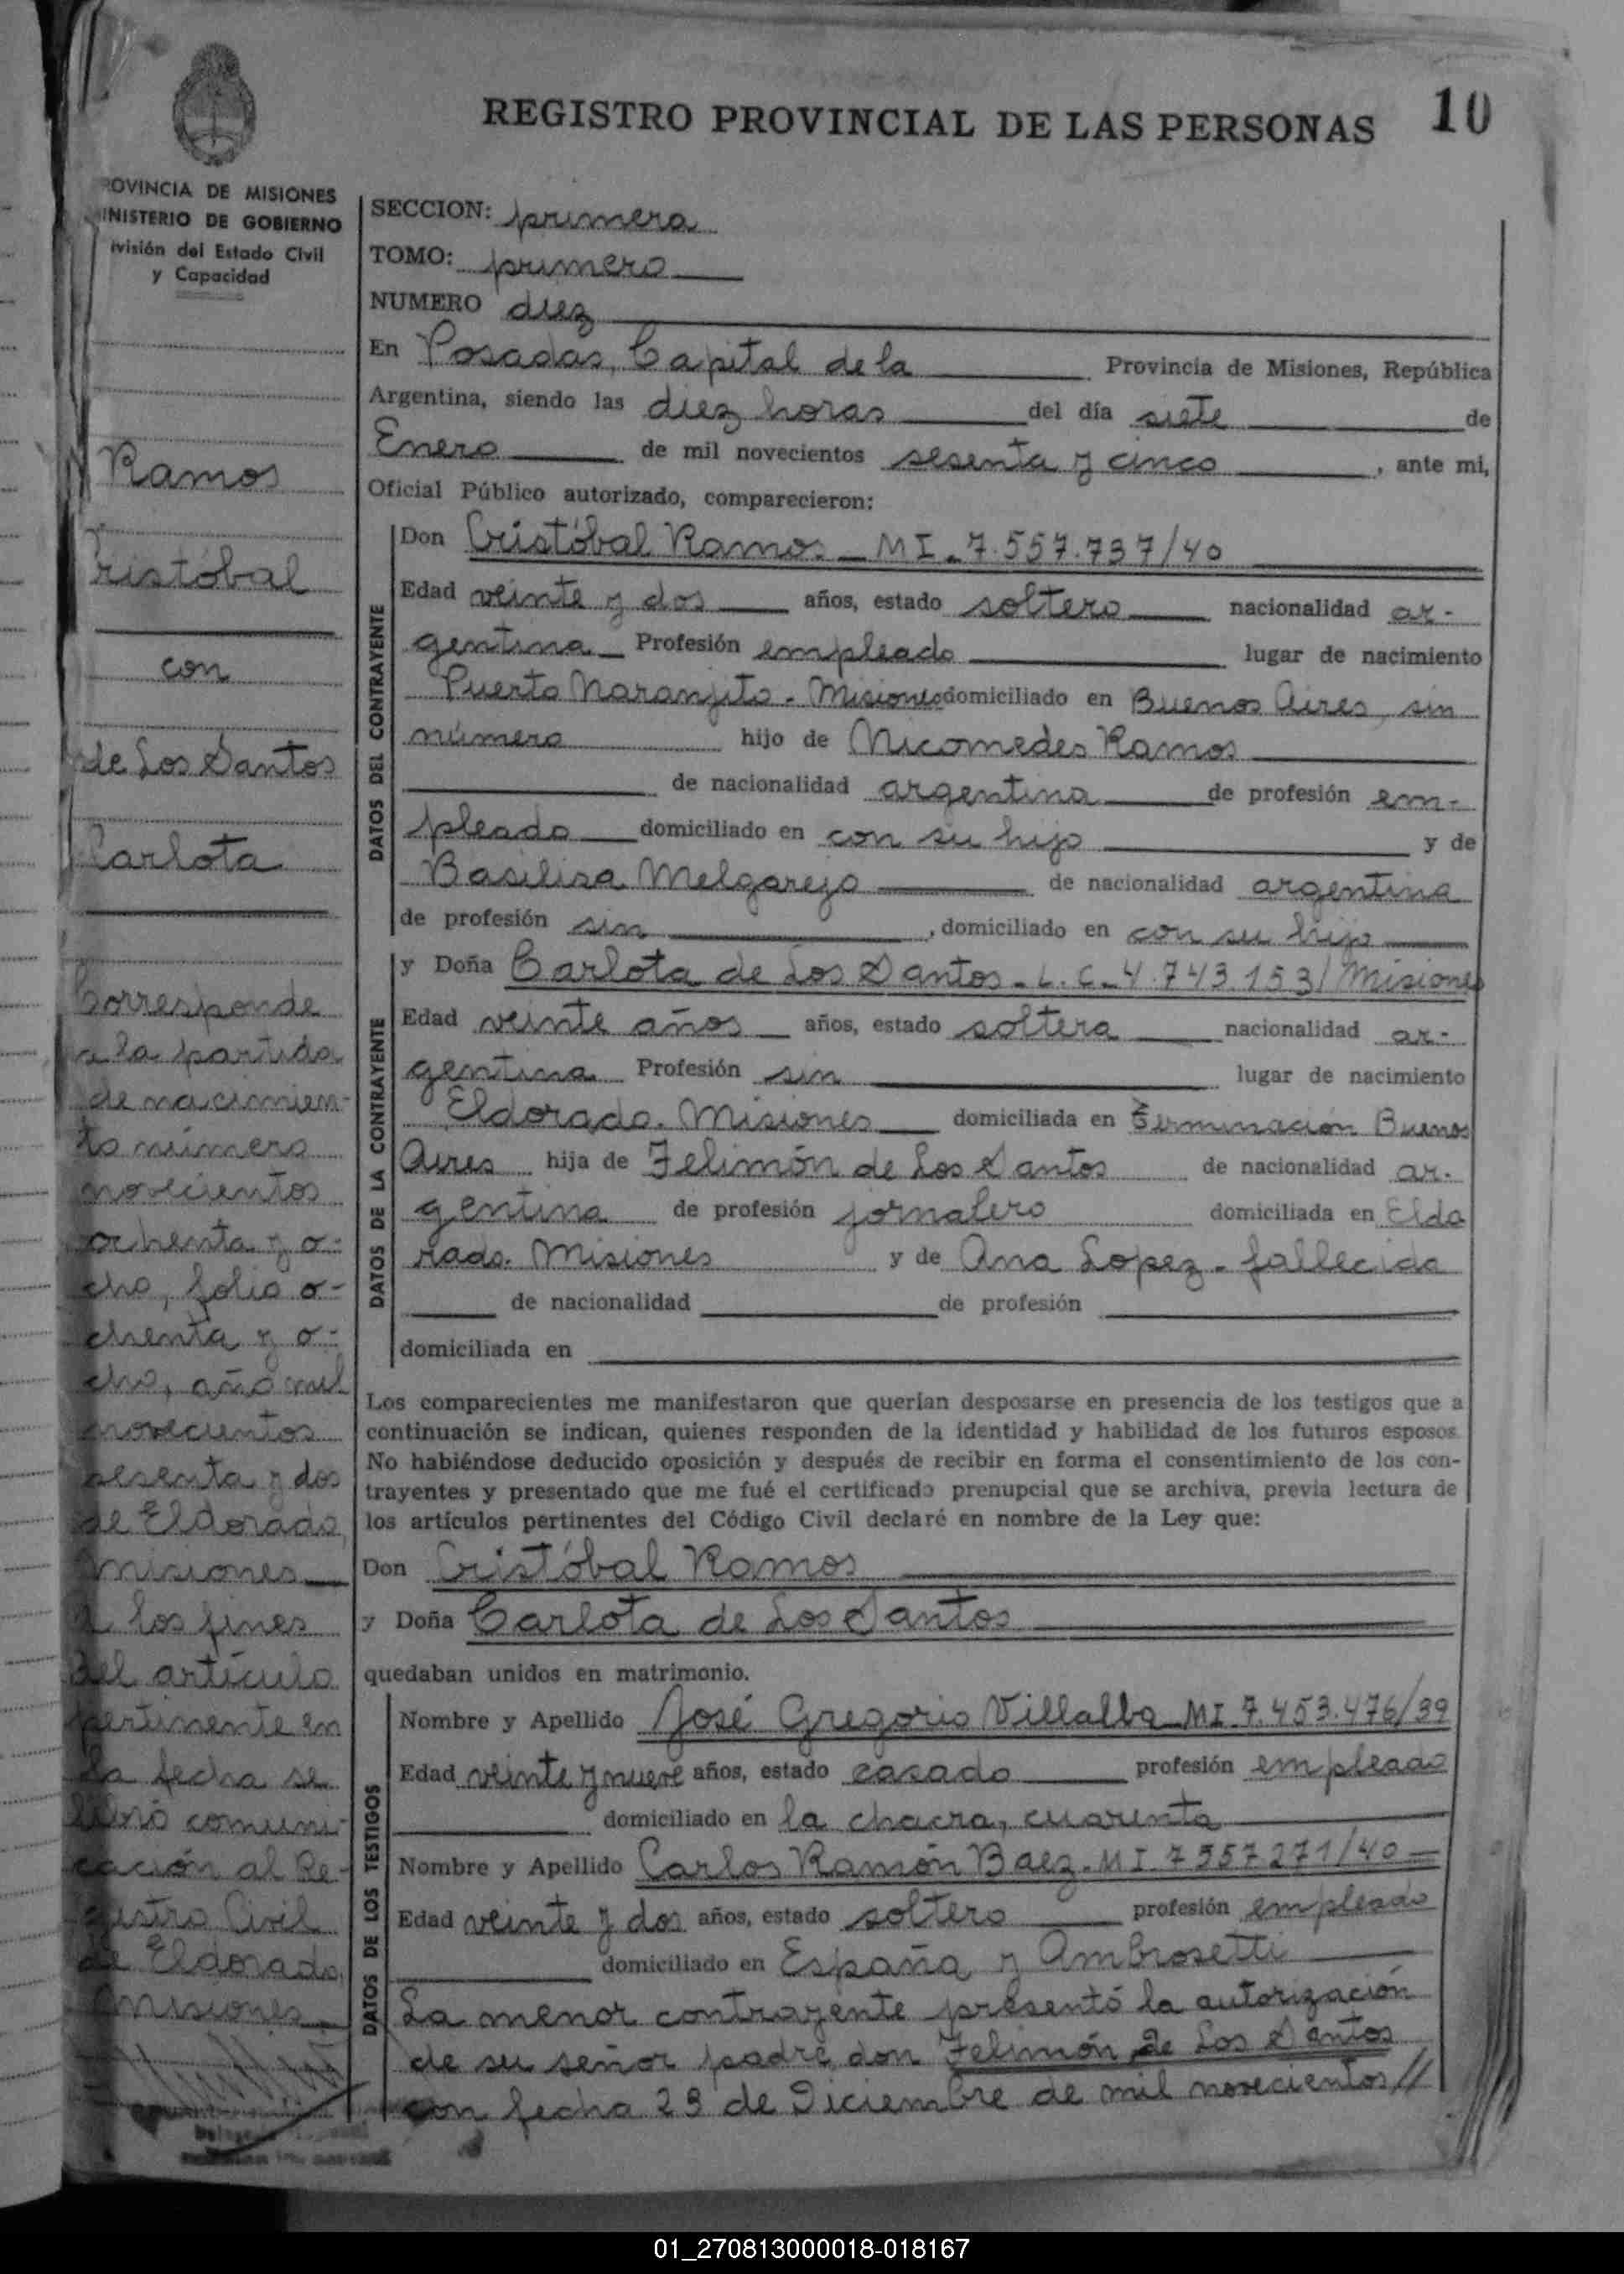 REGISTRO PROVINCIAL DE LAS PERSONAS 10
PROVINCIA DE MISIONES
MINISTERIO DE GOBIERNO
ivisión del Estado Civil
y Capacidad
Ramos
Cristóbal
con
de Los Santos
Carlota
Corresponde
a la partida
de nacimien-
to número
novecientos
ochenta y o-
cho, folio o-
chenta y o-
cho, año mil
novecientos
sesenta y dos
de Eldorado,
Misiones
A los fines
del artículo
pertinente en
la fecha se
libró comuni-
cación al Re-
gistro Civil
de Eldorado,
Misiones
SECCION: primera
TOMO: primero
NUMERO diez
En Posadas, Capital de la Provincia de Misiones, República
Argentina, siendo las diez horas del día siete de
Enero de mil novecientos sesenta y cinco, ante mi,
Oficial Público autorizado, comparecieron:
DATOS DEL CONTRAYENTE
Don Cristóbal Ramos - MI - 7.557.737/40
Edad veinte y dos años, estado soltero nacionalidad ar-
gentina Profesión empleado lugar de nacimiento
Puerto Naranjito - Misiones domiciliado en Buenos Aires, sin
número hijo de Nicomedes Ramos
de nacionalidad argentina de profesión em-
pleado domiciliado en con su hijo y de
Basilisa Melgarejo de nacionalidad argentina
de profesión sin, domiciliado en con su hijo
DATOS DE LA CONTRAYENTE
y Doña Carlota de Los Santos - L. C. - 4.743.153/Misiones
Edad veinte años años, estado soltera nacionalidad ar-
gentina Profesión sin lugar de nacimiento
Eldorado. Misiones domiciliada en Terminación Buenos
Aires hija de Felimón de Los Santos de nacionalidad ar-
gentina de profesión jornalero domiciliada en Eldo
rado. Misiones y de Ana Lopez - fallecida
de nacionalidad de profesión
domiciliada en
Los comparecientes me manifestaron que querían desposarse en presencia de los testigos que a
continuación se indican, quienes responden de la identidad y habilidad de los futuros esposos.
No habiéndose deducido oposición y después de recibir en forma el consentimiento de los con-
trayentes y presentado que me fué el certificado prenupcial que se archiva, previa lectura de
los artículos pertinentes del Código Civil declaré en nombre de la Ley que:
Don Cristóbal Ramos
y Doña Carlota de Los Santos
quedaban unidos en matrimonio.
DATOS DE LOS TESTIGOS
Nombre y Apellido José Gregorio Villalba - MI 7.453.476/39
Edad veinte y nueve años, estado casado profesión empleado
domiciliado en la chacra, cuarenta
Nombre y Apellido Carlos Ramón Baez - MI 7557271/40
Edad veinte y dos años, estado soltero profesión empleado
domiciliado en España y Ambrosetti
La menor contrayente presentó la autorización
de su señor padre, don Felimón de Los Santos
con fecha 23 de Diciembre de mil novecientos//
01_270813000018-018167